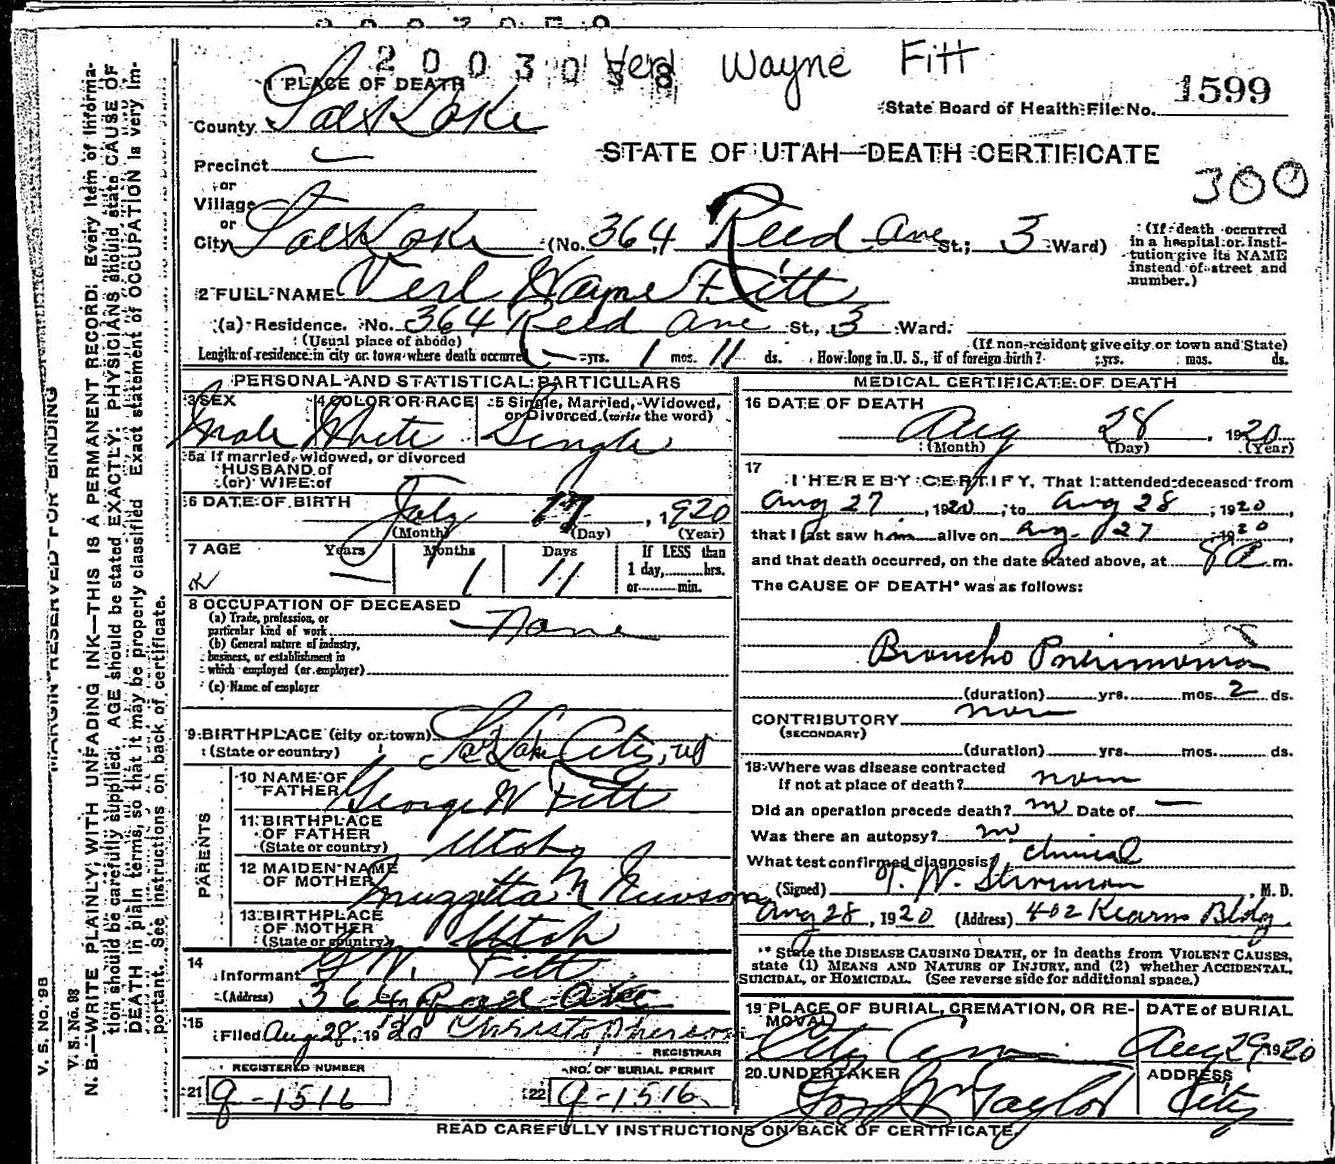 2003058 Verl Wayne Fitt
1599
State Board of Health File No.
1 PLACE OF DEATH
County Salt Lake
STATE OF UTAH—DEATH CERTIFICATE
Precinct
300
or
Village
or
City Salt Lake (No. 364 Reed Ave St.; 3 Ward)
(If death occurred in a hospital or Insti-
tution give its NAME
instead of street and
number.)
2 FULL NAME Verl Wayne Fitt
(a) Residence. No. 364 Reed Ave St., 3 Ward.
(Usual place of abode) (If non-resident give city or town and State)
Length of residence in city or town where death occurred — yrs. 1 mos. 11 ds. How long in U. S., if of foreign birth? yrs. mos. ds.
PERSONAL AND STATISTICAL PARTICULARS
3 SEX 4 COLOR OR RACE 5 Single, Married, Widowed,
or Divorced (write the word)
Male White Single
5a If married, widowed, or divorced
HUSBAND of
(or) WIFE of
6 DATE OF BIRTH July 17, 1920
(Month) (Day) (Year)
7 AGE Years Months Days If LESS than
1 day, hrs.
or min.
— 1 11
8 OCCUPATION OF DECEASED
(a) Trade, profession, or
particular kind of work None
(b) General nature of industry,
business, or establishment in
which employed (or employer)
(c) Name of employer
9 BIRTHPLACE (city or town) Salt Lake City, Ut
(State or country)
PARENTS
10 NAME OF
FATHER George W Fitt
11 BIRTHPLACE
OF FATHER
(State or country) Utah
12 MAIDEN NAME
OF MOTHER Muzzetta N Newson
13 BIRTHPLACE
OF MOTHER
(State or country) Utah
14
Informant G W. Fitt
(Address) 364 Reed Ave
15
Filed Aug 28, 1920 Christopherson
REGISTRAR
REGISTERED NUMBER NO. OF BURIAL PERMIT
21 9-1516 22 9-1516
MEDICAL CERTIFICATE OF DEATH
16 DATE OF DEATH
Aug 28, 1920
(Month) (Day) (Year)
17
I HEREBY CERTIFY, That I attended deceased from
Aug 27, 1920, to Aug 28, 1920,
that I last saw him alive on Aug. 27 1920,
and that death occurred, on the date stated above, at 8 a m.
The CAUSE OF DEATH* was as follows:
Broncho Pneumonia
(duration) yrs. mos. 2 ds.
CONTRIBUTORY none
(SECONDARY)
(duration) yrs. mos. ds.
18 Where was disease contracted
if not at place of death?
Did an operation precede death? no Date of —
Was there an autopsy? no
What test confirmed diagnosis? clinical
(Signed) T. W. Stevenson, M. D.
Aug 28, 1920 (Address) 402 Kearns Bldg
* State the DISEASE CAUSING DEATH, or in deaths from VIOLENT CAUSES,
state (1) MEANS AND NATURE OF INJURY, and (2) whether ACCIDENTAL,
SUICIDAL, or HOMICIDAL. (See reverse side for additional space.)
19 PLACE OF BURIAL, CREMATION, OR RE-
MOVAL DATE of BURIAL
City Cem Aug 29 1920
20 UNDERTAKER ADDRESS
Taylor City
READ CAREFULLY INSTRUCTIONS ON BACK OF CERTIFICATE.
V. S. No. 98
V. S. No. 98
MARGIN RESERVED FOR BINDING
N. B.—WRITE PLAINLY, WITH UNFADING INK—THIS IS A PERMANENT RECORD: Every item of informa-
tion should be carefully supplied. AGE should be stated EXACTLY. PHYSICIANS should state CAUSE OF
DEATH in plain terms, so that it may be properly classified. Exact statement of OCCUPATION is very im-
portant. See instructions on back of certificate.